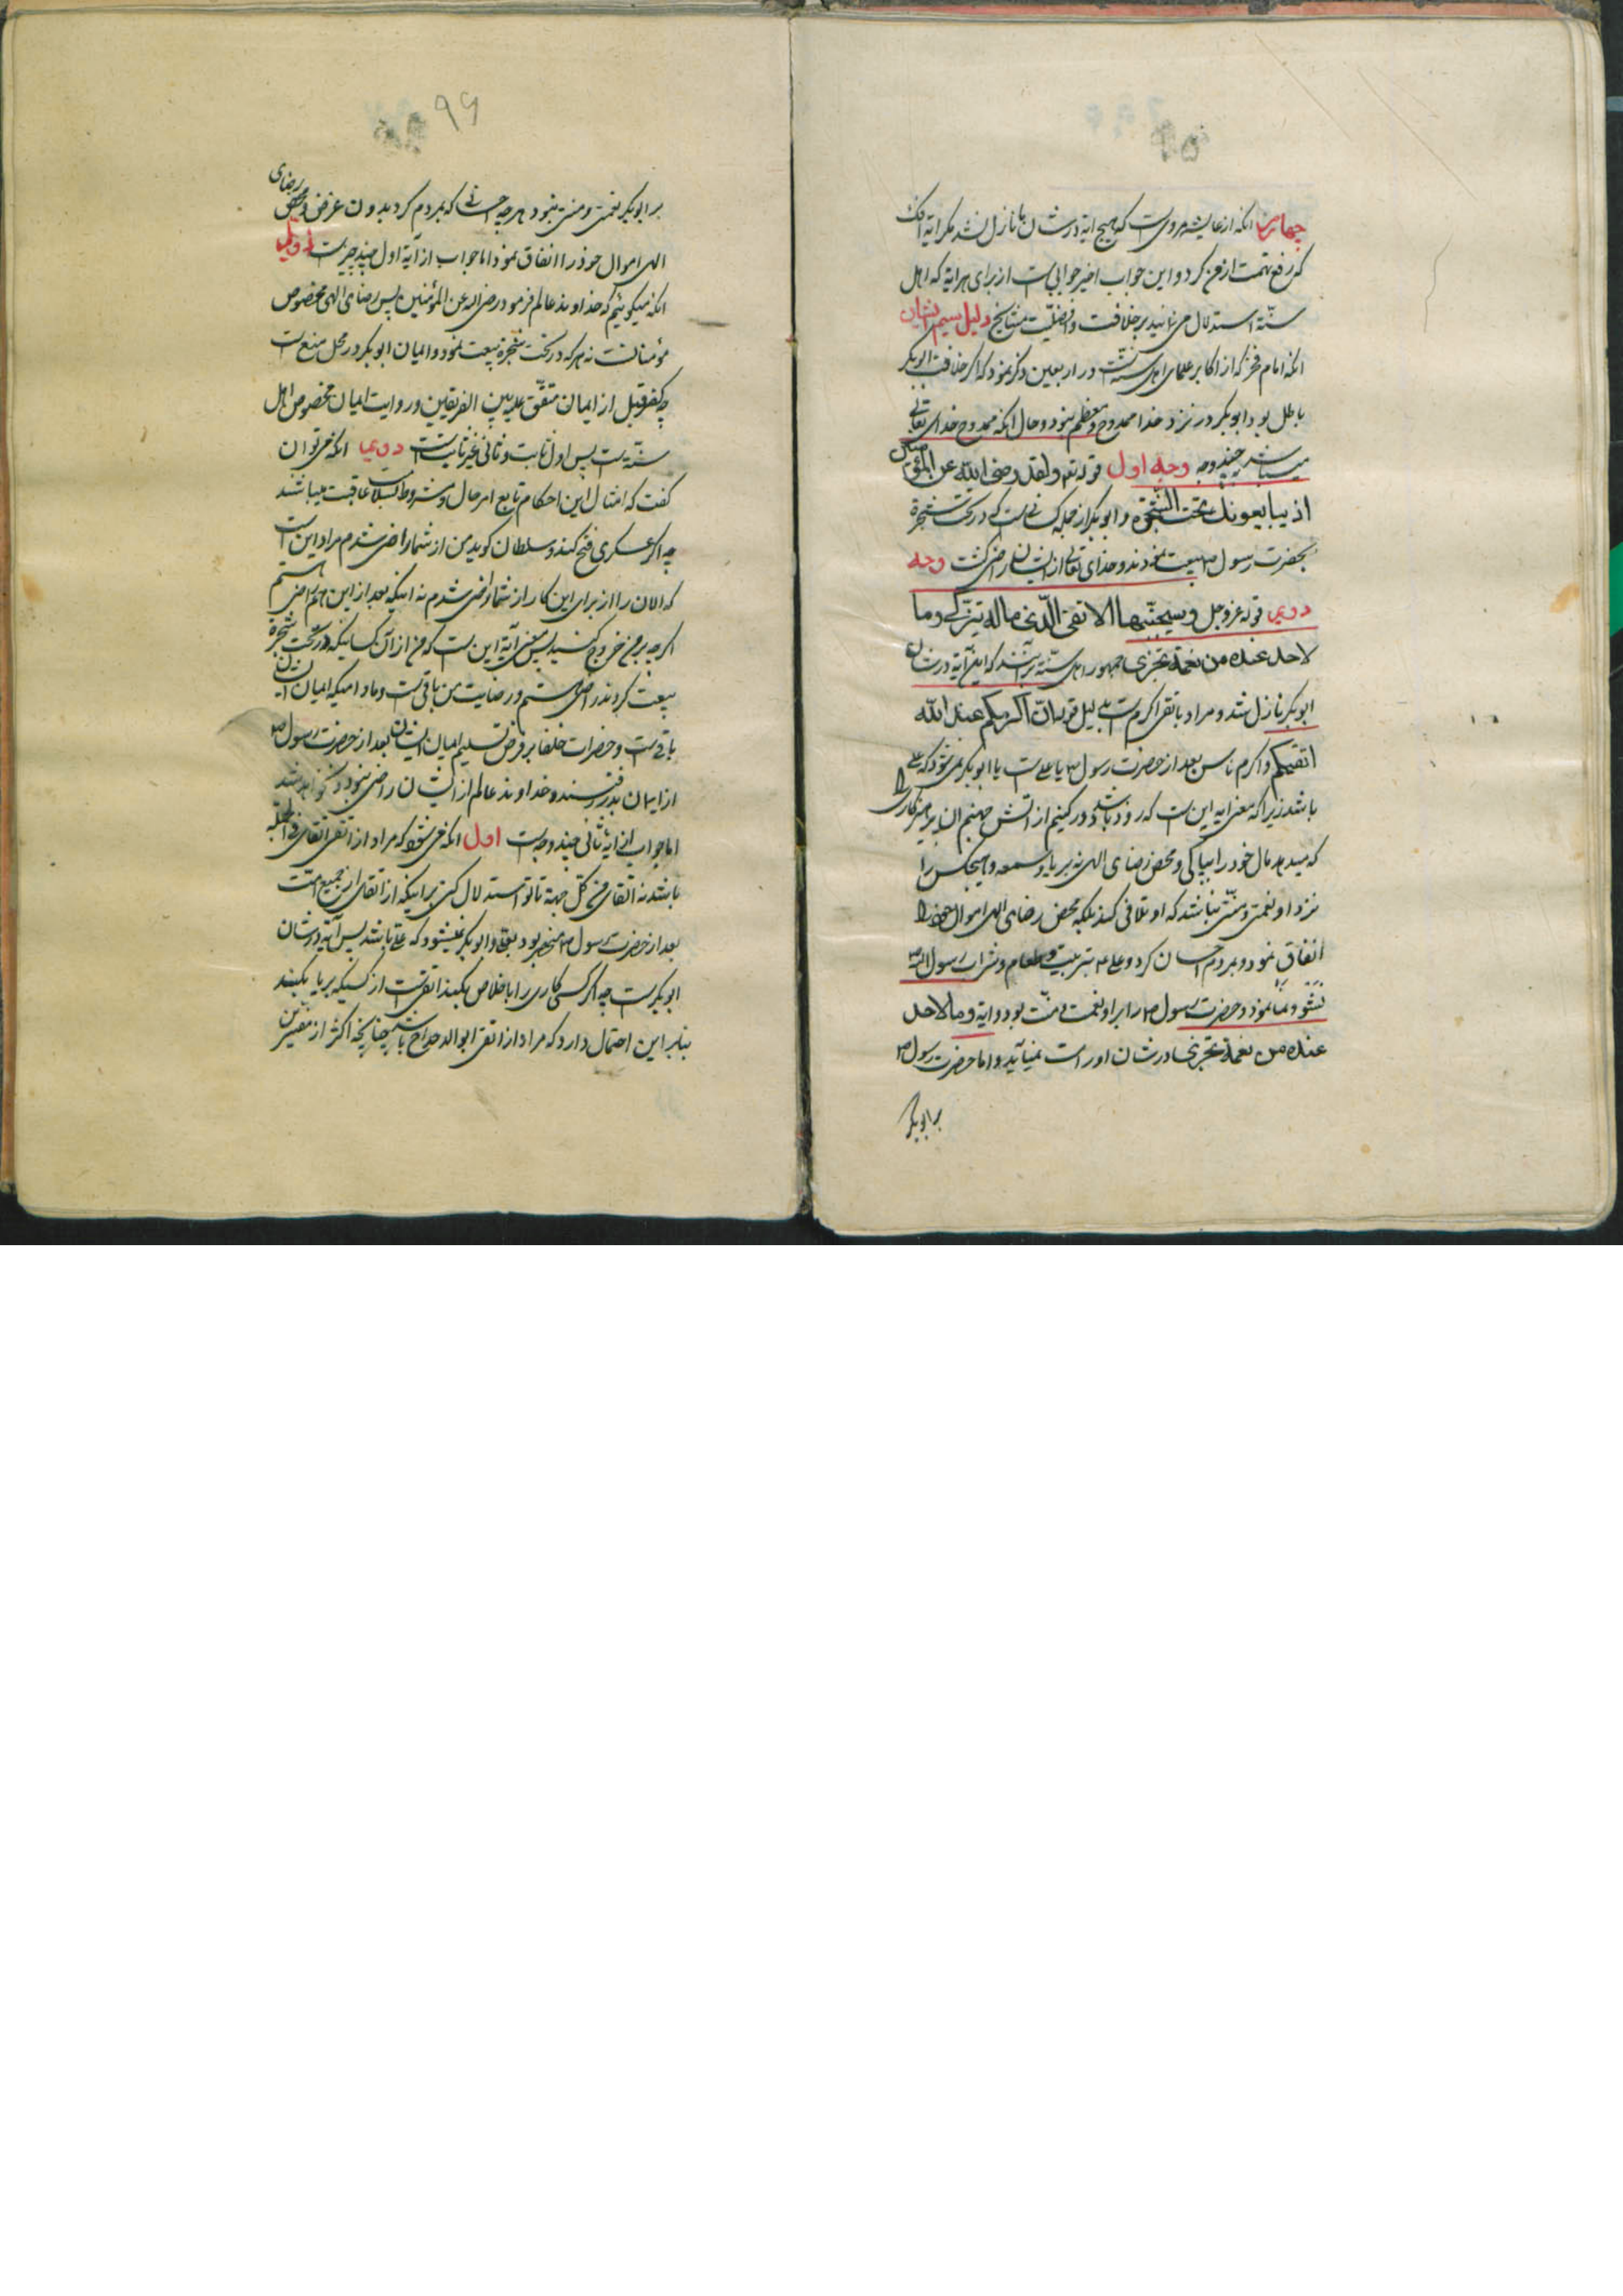 چهارم انکه از عایشه مرویست که هیچ ایة در شان ما نازل نشد مکر ایة افک
که رفع تهمت از من کرد و این جواب اخیر جوابی است از برای هر ایه که اهل
سنّة استدلال می نمایند بر خلافت و افضلیّت مشایخ دلیل سیم ایشان
انکه امام فخر که از اکابر علمای اهل سنّت در اربعین ذکر نمود که اکر خلافت ابو بکر
باطل بود ابو بکر در نزد خدا ممدوح و معظم نبود و حال انکه ممدوح خدای تعالی
میباشد بچند وجه وجه اول قوله تع ولقد رضی الله عن المؤمنین
اذ یبایعونك تحت الشجره و ابو بکر از جمله کسانی است که در تحت شجرة
بحضرت رسول ص بیعت نمودند و خدای تعالی از ایشان راضی کشت وجه
دویم قوله عزوجل وسیجنّبها الاتقی الّذی ماله یتزکّی وما
لاحد عنده من نعمة تجزی جمهور اهل سنّة برآنند که این آیة در شان
ابو بکر نازل شد و مراد باتقی اکرم است بدلیل قوله انّ اکرمکم عند الله
اتقیکم و اکرم ناس بعد از حضرت رسول ص یا علی است یا ابو بکر نمی شود که علی
باشد زیرا که معنی ایه این است که زود باشد دور کنیم از اتش جهنم ان پرهیزکاری را
که میدهد مال خود را بپاکی و محض رضای الهی نه بریا و سمعه و هیچکس را
نزد او نعمتی و منّتی نباشد که او تلافی کند بلکه محض رضای الهی اموال خود را
انفاق نمود و بمردم احسان کرد و علی ع بتربیت و طعام و شراب رسول الله ص
نشو و نما نمود و حضرت رسول ص را بر او نعمت و منّت بود و ایة وما لاحد
عنده من نعمة تجزی در شان او راست نمیآید و اما حضرت رسول ص
بر ابو بکر
۹۶
بر ابو بکر نعمتی و منتی نبود هر چه احسانی که بمردم کرد بدون عرض و محض رضای
الهی اموال خود را انفاق نمود اما جواب از آیة اول چند چیز است اول
انکه میکوئیم که خداوند عالم فرمود رضی الله عن المؤمنین پس رضای الهی مخصوص
مؤمنانست نه هر که در تحت شجرة بیعت نمود و ایمان ابو بکر در محل منع است
چه کفر قبل از ایمان متفّق علیه بین الفریقین و روایت ایمان مخصوص اهل
سنّة است پس اول ثابت و ثانی غیر ثابتست دویم انکه می توان
کفت که امثال این احکام تابع امر حال و مشروط بسلامت عاقبت میباشند
چه اکر عسکری فتح کنند و سلطان کوید من از شما راضی شدم مراد این است
که الان را از برای این کار از شما راضی شدم نه اینکه بعد از این هم راضی هستم
اکر چه بر من خروج کنید پس معنی آیة این است که من از آن کسانیکه در تحت شجرة
بیعت کردند راضی هستم و رضایت من باقی است و مادامیکه ایمان ایشان
باقیست و حضرات خلفا بر فرض تسلیم ایمان ایشان بعد از حضرت رسول ص
از ایمان بدر رفتند و خداوند عالم از ایشان راضی نبود و نخواهد شد
اما جواب از ایة ثانی چند وجه است اول انکه می شود که مراد از اتقی اتقای فی الجمله
باشد نه اتقای من کل جهة تا تو استدلال کنی بر اینکه اتقای از جمیع امّت
بعد از حضرت رسول ص منحصر بود بعلی و ابو بکر نمیشود که علی باشد پس آیة در شان
ابو بکر است چه اکر کسی کاری را باخلاص بکند اتقی است از کسیکه بریا بکند
بنابر این احتمال دارد که مراد از اتقی ابو الدحداح باشد چنانچه اکثر از مفسّرین